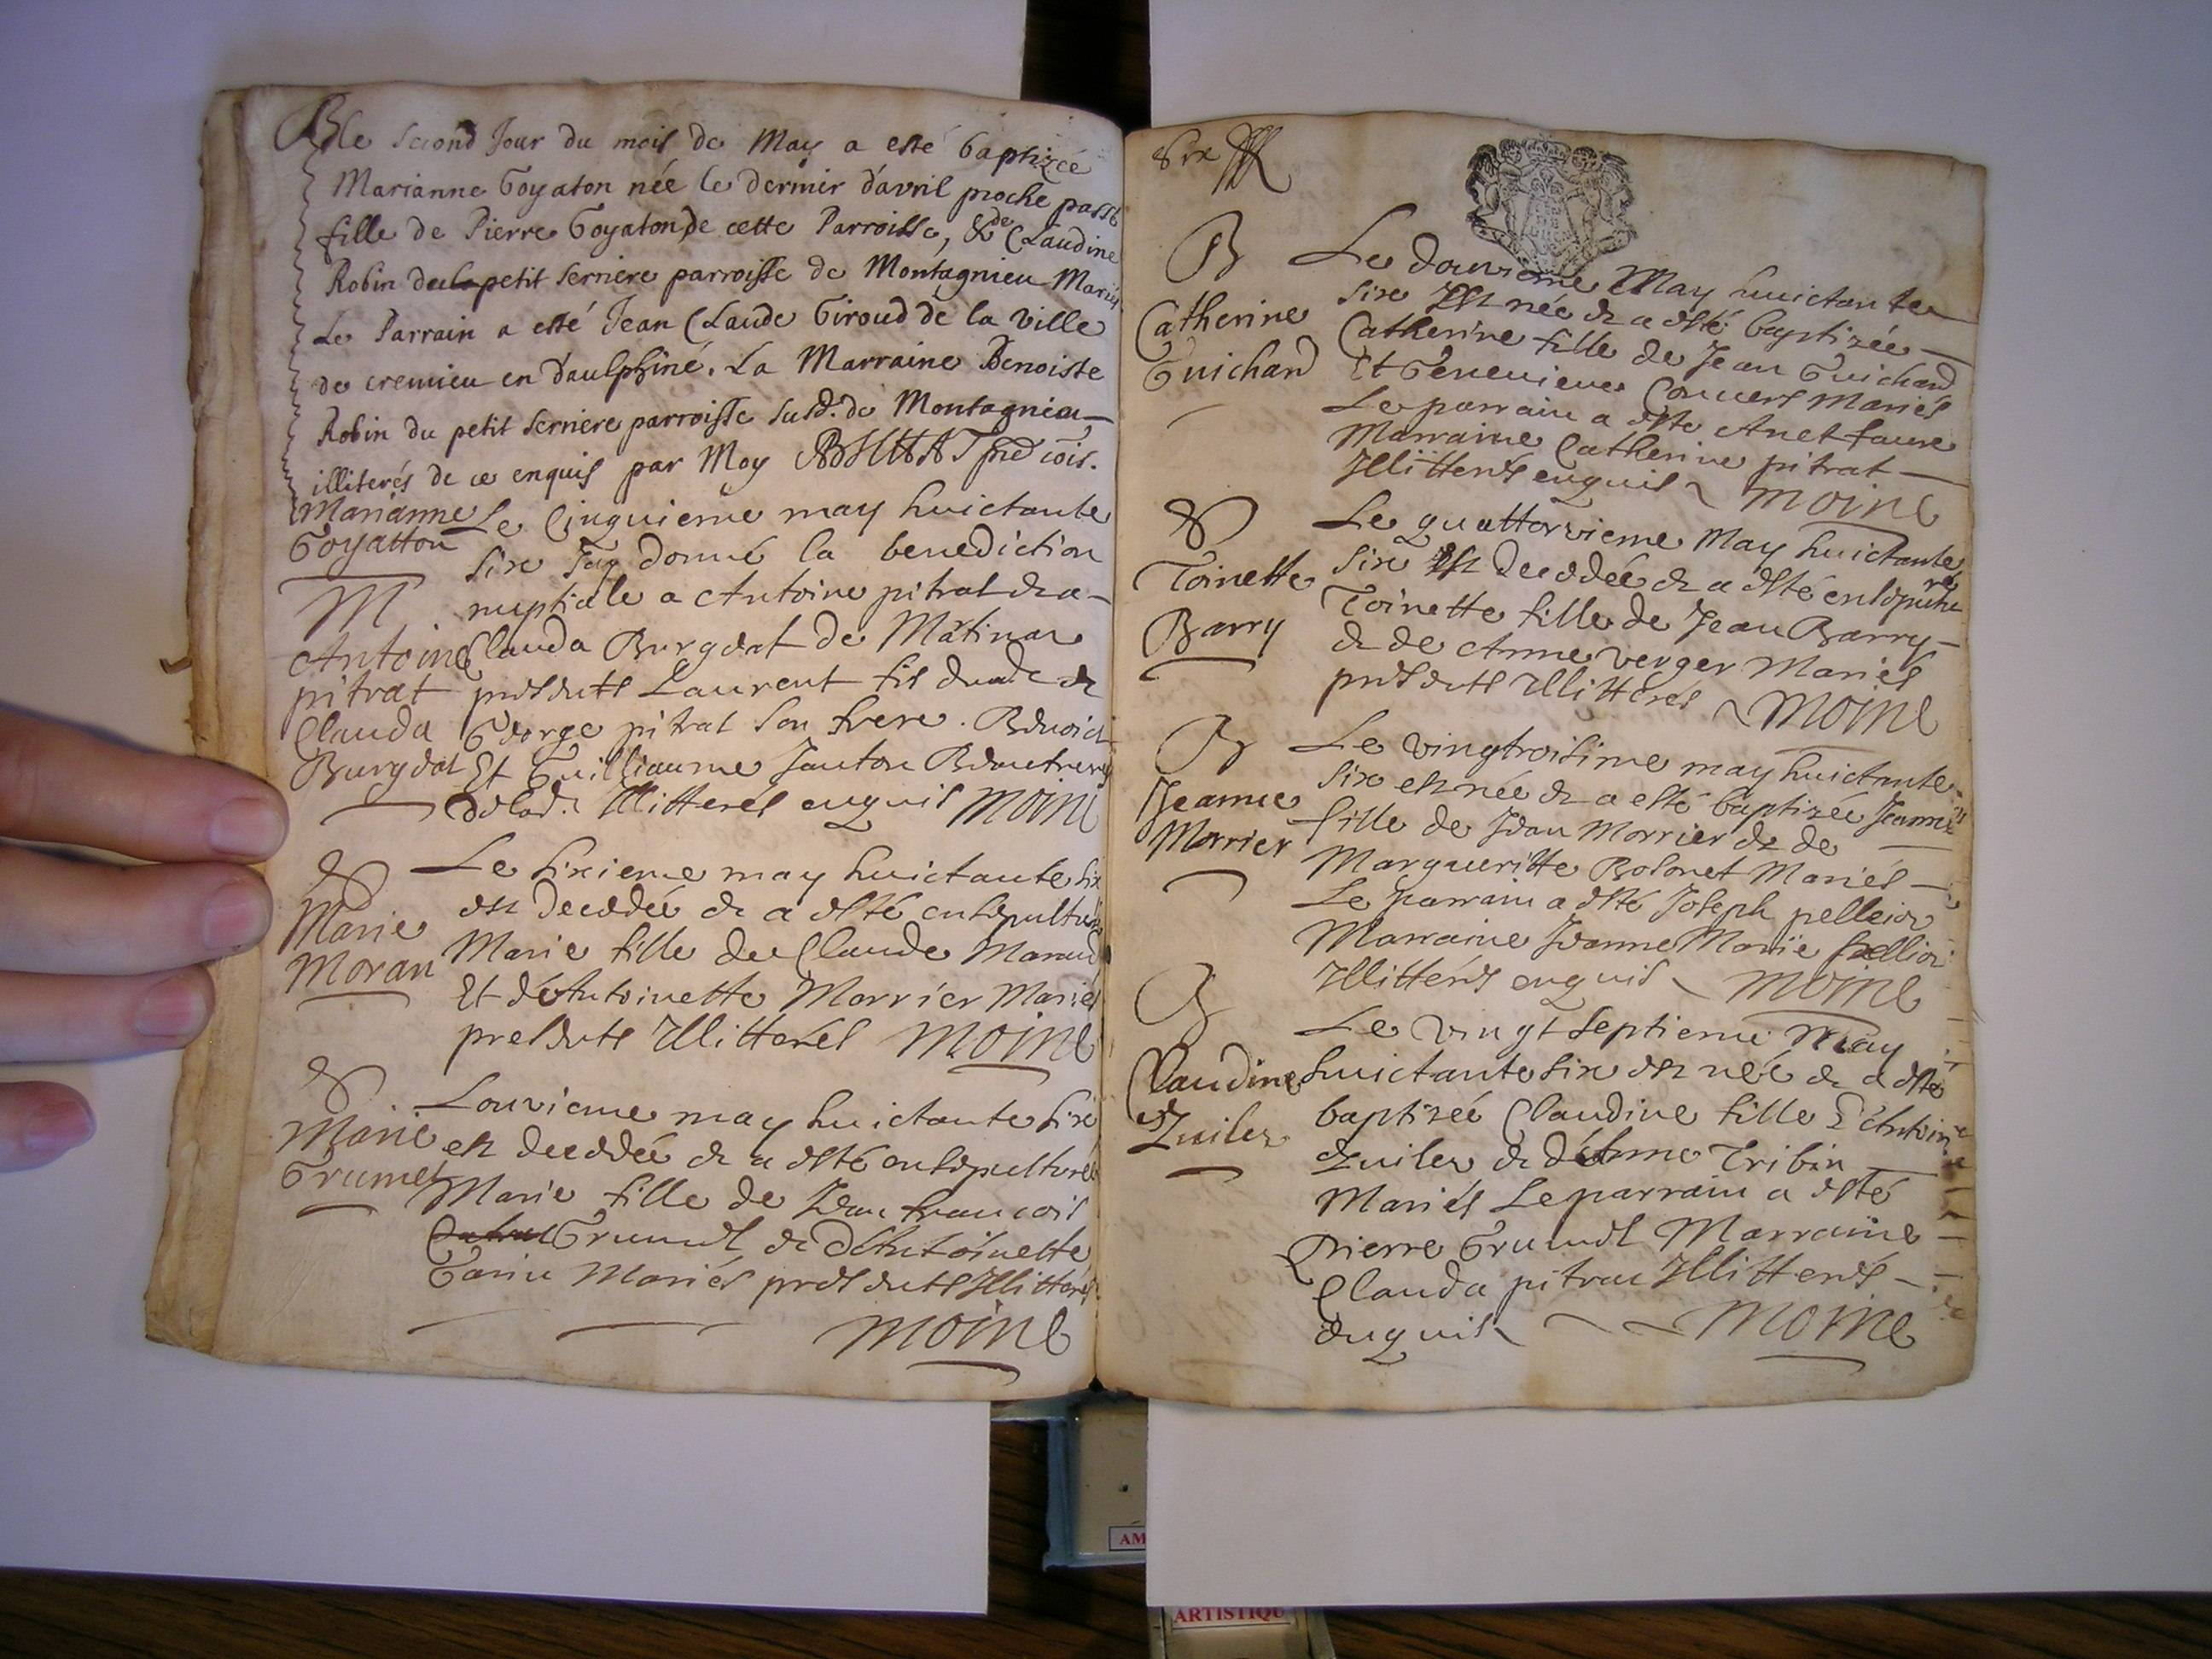 B le second Jour du mois de May a esté baptizée
Marianne Goyaton née le dernier d'avril proche passé
fille de Pierre Goyaton de cette Parroisse, & de Claudine
Robin petit serriere parroisse de Montagnieu Mariés
Le Parrain a esté Jean Claude Giroud de la ville
de cremieu en daulphiné. La Marraine Benoiste
Robin du petit serriere parroisse susd. de Montagnieu
illiterés de ce enquis par Moy
Marianne
Goyatton
M
Antoine
pitrat
Clauda
Burgdat
Le Cinquieme may huictante
six Jay donné la benediction
nuptiale a Antoine pitrat & a
Clauda Burgdat de
presents Laurent fils dud. &
George pitrat son frere.
Et Guilliaume Janton
Illitterés enquis Moine
S
Marie
Moran
Le sixieme may huictante six
est decedée & a esté ensepulturée
Marie fille de Claude Moran
Et d'Antoinette Morrier Mariés
presents Illitterés Moine
S
Marie
Grumet
Lonzieme may huictante six
est decedée & a esté ensepulturée
Marie fille de Jean francois
Grumet & d'Antoinette
Garin Mariés presents Illitterés
Moine
Six
B
Catherine
Guichard
Le douzieme May huictante
six Est née & a esté baptizée
Catherine fille de Jean Guichard
Et Genevieve Convert Mariés
Le parrain a esté Anet faure
Marraine Catherine pitrat
Illitterés enquis Moine
S
Toinette
Barry
Le quattorzieme May huictante
six Est decedée & a esté ensepulturée
Toinette fille de Jean Barry
& de Anne verger Mariés
presents Illitterés Moine
B
Jeanne
Morrier
Le vingtroisime may huictante
six est née & a esté baptizée Jeanne
fille de Jean Morrier & de
Margueritte Bolonet Mariés
Le parrain a esté Joseph
Marraine Jeanne Marie
Illitterés enquis Moine
B
Claudine
Le vingt septieme May
huictante six est née & a esté
baptizée Claudine fille d'Antoine
& d'Anne Tribin
Mariés Le parrain a esté
Pierre Grumet Marraine
Clauda pitrat Illitterés
enquis Moine
AM
ARTISTIQU